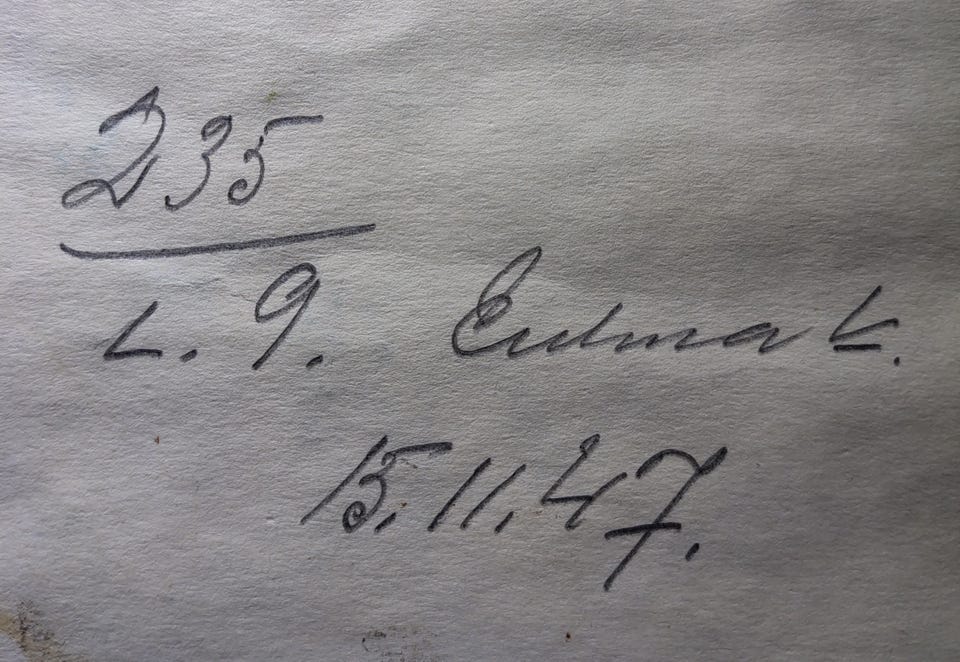 D 35
L. 9. Eulma L.
15.11.47.